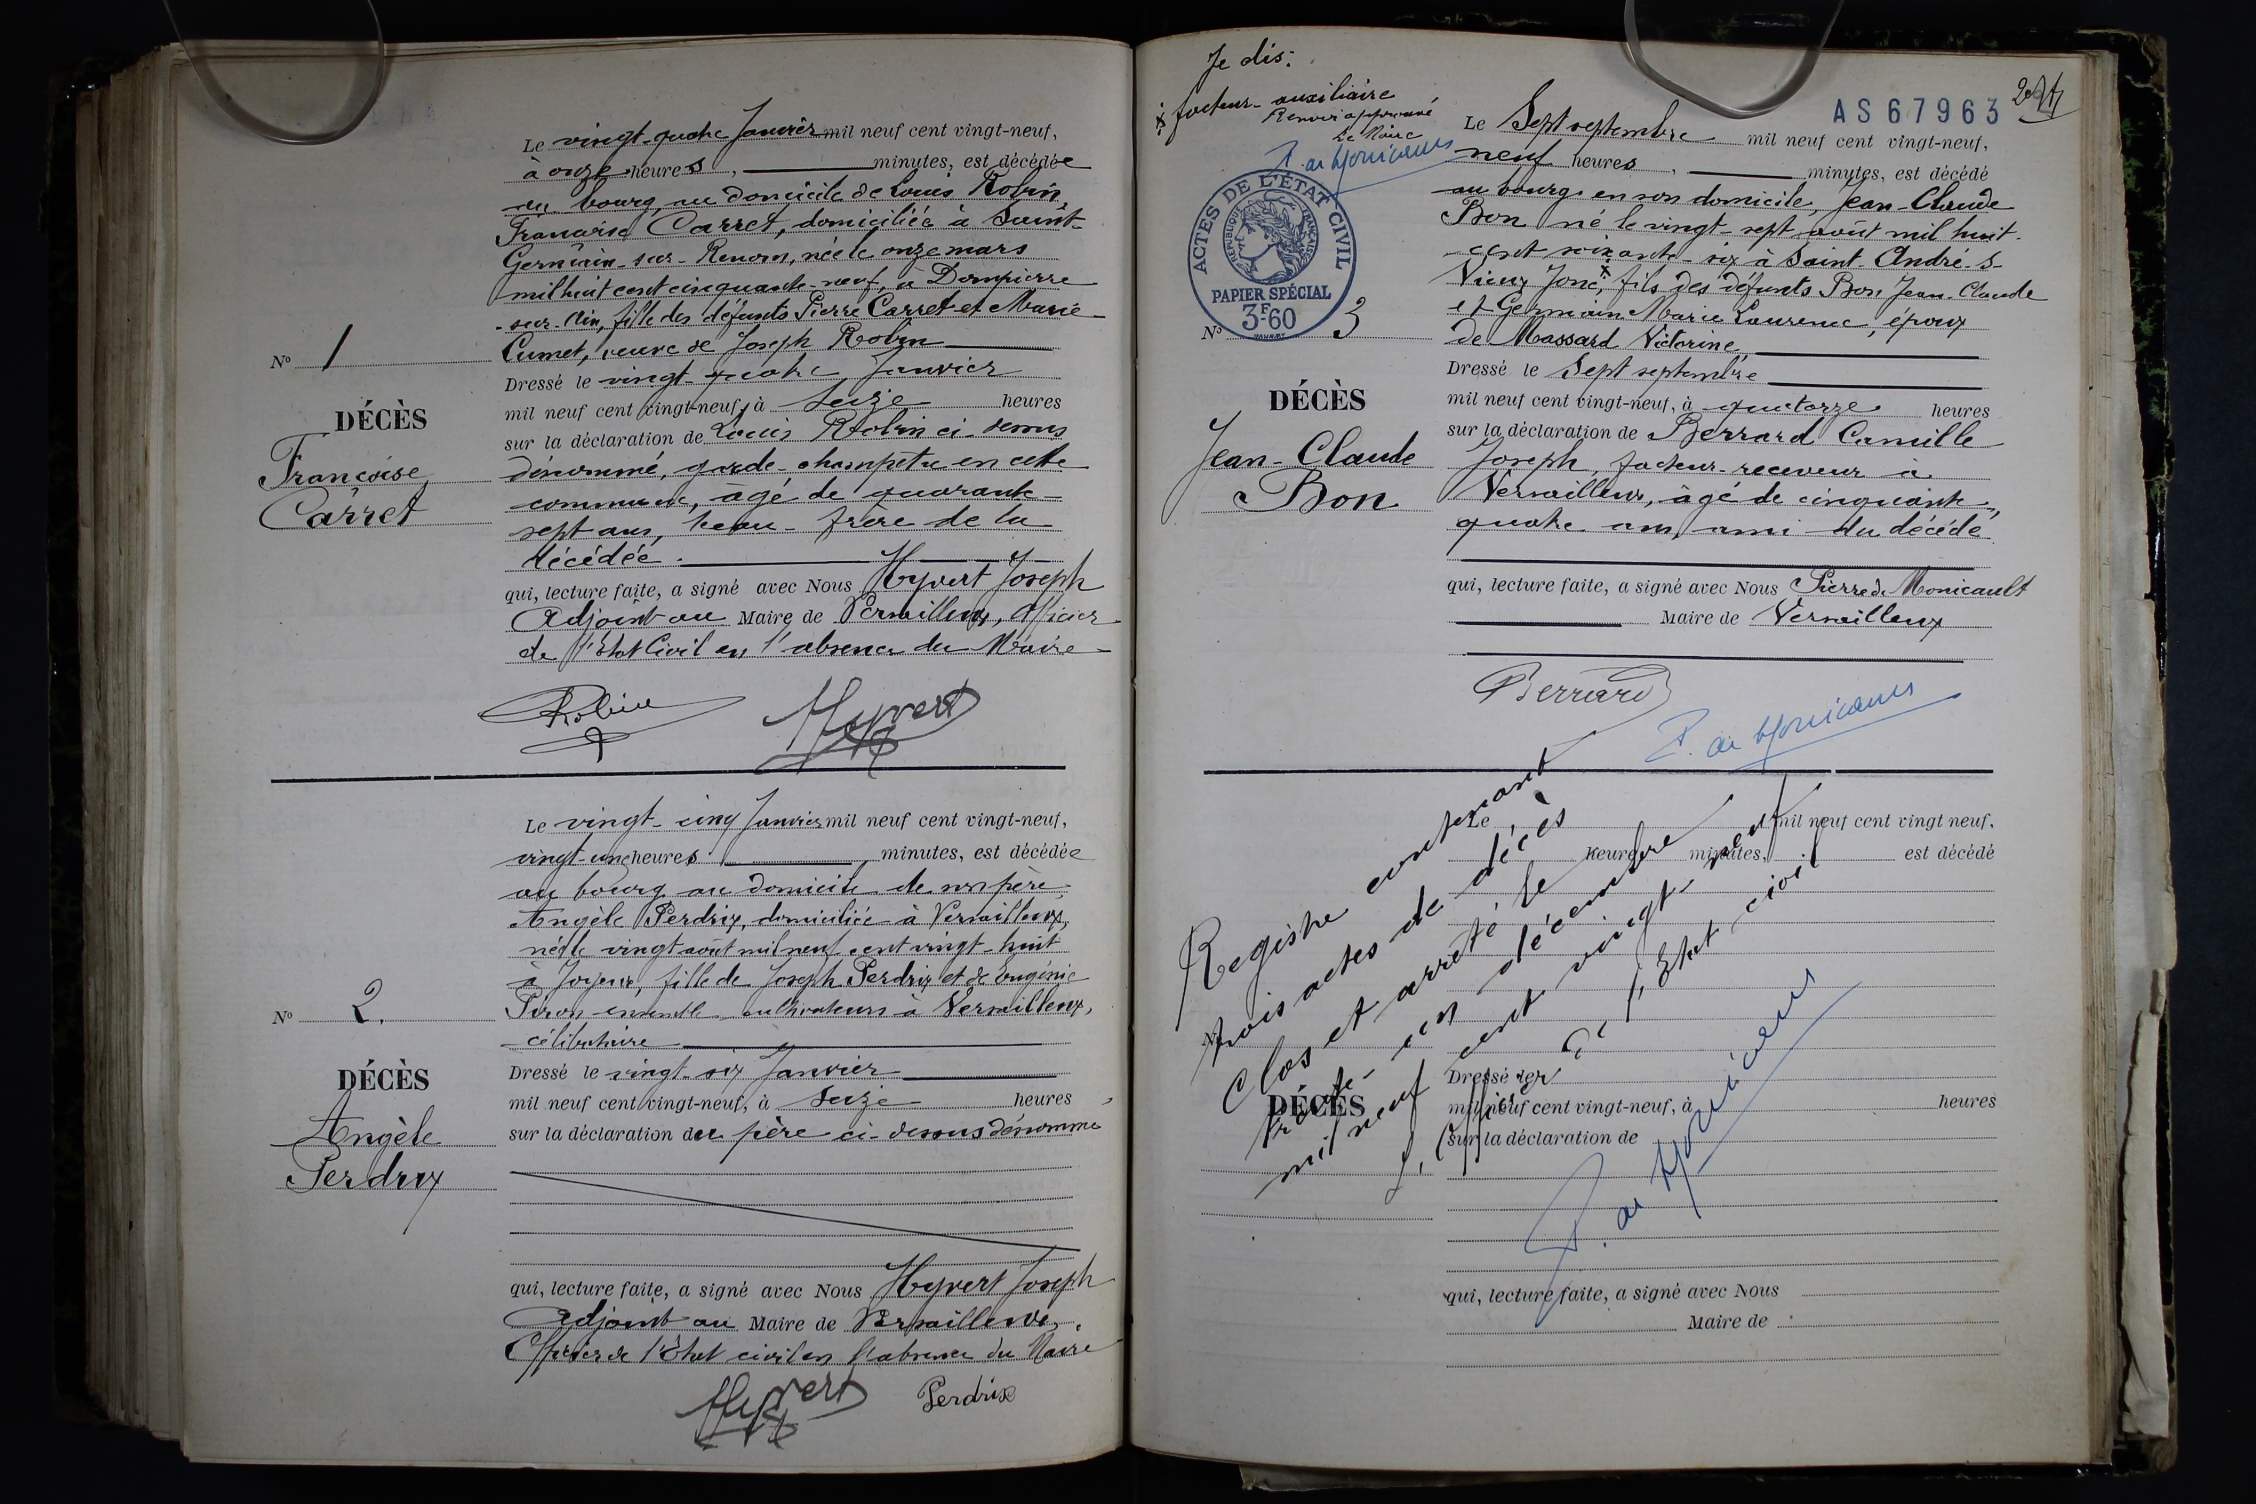 Le vingt-quatre Janvier mil neuf cent vingt-neuf,
à onze heures, minutes, est décédée
au bourg, au domicile de Louis Robin
Françoise Carret, domiciliée à Saint-
Germain-sur-Renom, née le onze mars
mil huit cent cinquante-neuf, à Dompierre
-sur-Ain, fille des défunts Pierre Carret et Marie
Cumet, veuve de Joseph Robin
Dressé le vingt-quatre Janvier
mil neuf cent vingt-neuf, à seize heures
sur la déclaration de Louis Robin ci-dessus
dénommé, garde-champêtre en cette
commune, âgé de quarante-
sept ans, beau-frère de la
décédée.
qui, lecture faite, a signé avec Nous Hyvert Joseph
Adjoint au Maire de Versailleux, Officier
de l'Etat Civil en l'absence du Maire
Robin Hyvert
No 1
DÉCÈS
Françoise
Carret
Le vingt-cinq Janvier mil neuf cent vingt-neuf,
vingt-une heures minutes, est décédée
au bourg au domicile de son père
Angèle Perdrix, domiciliée à Versailleux,
née le vingt août mil neuf cent vingt-huit
à Joyeux, fille de Joseph Perdrix et de Eugénie
Piron ensemble cultivateurs à Versailleux,
célibataire
Dressé le vingt-six Janvier
mil neuf cent vingt-neuf, à seize heures
sur la déclaration du père ci-dessus dénommé
qui, lecture faite, a signé avec Nous Hyvert Joseph
Adjoint au Maire de Versailleux,
Officier de l'Etat civil en l'absence du Maire
Hyvert Perdrix
No 2.
DÉCÈS
Angèle
Perdrix
Je dis:
x facteur-auxiliaire
Renvoi approuvé
Le Maire
P. de Monicault
ACTES DE L'ÉTAT CIVIL
RÉPUBLIQUE FRANÇAISE
PAPIER SPÉCIAL
3F60
AS67963
Le Sept septembre mil neuf cent vingt-neuf,
neuf heures, minutes, est décédé
au bourg en son domicile, Jean-Claude
Bon né le vingt-sept août mil huit-
cent soixante-six à Saint-André-s-
Vieux Jonc,x fils des défunts Bon Jean-Claude
et Germain Marie Laurence, époux
de Massard Victorine
Dressé le Sept septembre
mil neuf cent vingt-neuf, à quatorze heures
sur la déclaration de Berrard Camille
Joseph, facteur-receveur à
Versailleux, âgé de cinquante-
quatre ans, ami du décédé
qui, lecture faite, a signé avec Nous Pierre de Monicault
Maire de Versailleux
Berrard
P. de Monicault
No 3
DÉCÈS
Jean-Claude
Bon
Le mil neuf cent vingt neuf,
heures minutes, est décédé
No
DÉCÈS
Dressé le
mil neuf cent vingt-neuf, à heures
sur la déclaration de
qui, lecture faite, a signé avec Nous
Maire de
Registre contenant
trois actes de décès
Clos et arrêté le
trente-un décembre
mil neuf cent vingt-neuf
L'Officier de l'Etat civil
P. de Monicault